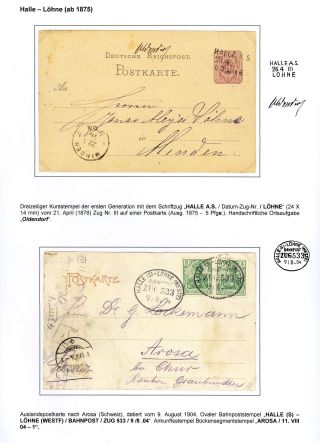 Halle – Löhne (ab 1875)
Oldendorf
DEUTSCHE REICHSPOST
POSTKARTE.
An
Herren
Minden
HALLE A.S.
26.4 III
LÖHNE
Oldendorf
Dreizeiliger Kursstempel der ersten Generation mit dem Schriftzug „HALLE A.S. / Datum-Zug-Nr. / LÖHNE“ (24 X
14 mm) vom 21. April (1876) Zug Nr. III auf einer Postkarte (Ausg. 1875 - 5 Pfge.). Handschriftliche Ortsaufgabe
„Oldendorf“.
POSTKARTE
HALLE (S)-LÖHNE (WESTF)
ZUG 533
9/8.04
Dr. G. Lockemann
Arosa
bei Chur
Kanton Graubünden
HALLE (S)-LÖHNE (WESTF)
BAHNPOST
ZUG 533
9/8.04
Auslandspostkarte nach Arosa (Schweiz), datiert vom 9. August 1904. Ovaler Bahnpoststempel „HALLE (S) –
LÖHNE (WESTF) / BAHNPOST / ZUG 533 / 9/8 .04“. Ankunftsstempel Bogensegmentstempel „AROSA / 11. VIII
04 – 1“.